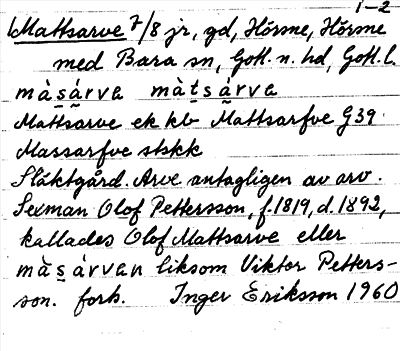 1-2
Mattsarve 7/8 jr, gd, Hörsne, Hörsne
med Bara sn, Gotl. n. hd, Gotl. l.
màs̱á̰rva màṯsá̰rva
Mattsarve ek kb Mattsarfve G 39
Massarfve stskk
Släktgård. Arve antagligen av arv.
Sexman Olof Pettersson, f. 1819, d. 1892,
kallades Olof Mattsarve eller
màs̱árvan liksom Viktor Petters-
son. forts. Inger Eriksson 1960